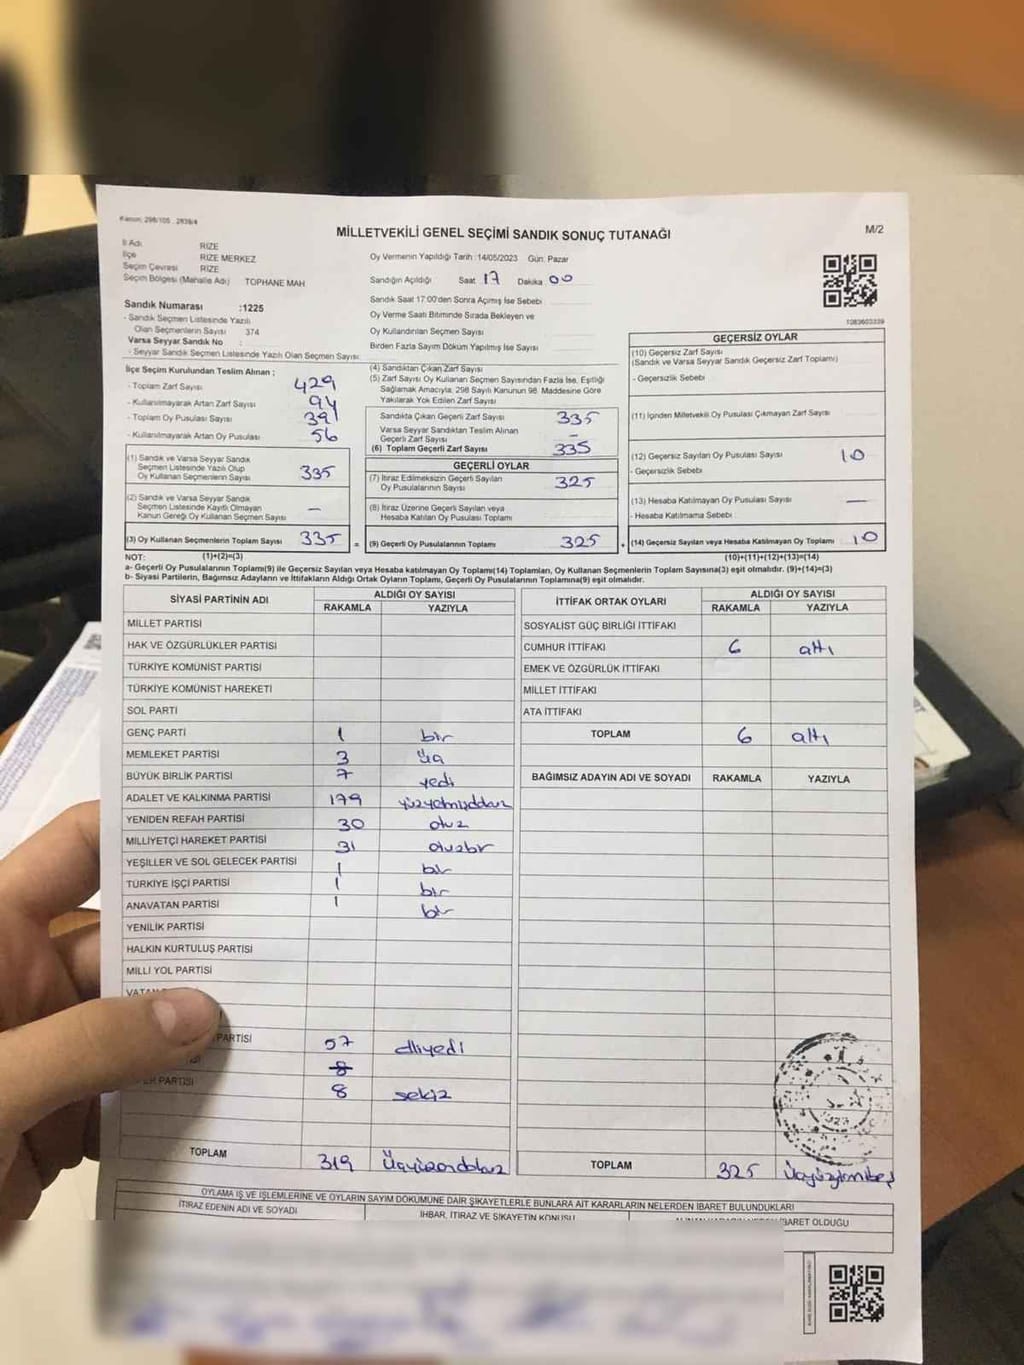 Kanun: 298/105 , 2839/4
MİLLETVEKİLİ GENEL SEÇİMİ SANDIK SONUÇ TUTANAĞI
M/2
İl Adı RİZE
İlçe RİZE MERKEZ
Seçim Çevrası RİZE
Seçim Bölgesi (Mahalle Adı) TOPHANE MAH
Sandık Numarası :1225
- Sandık Seçmen Listesinde Yazılı
Olan Seçmenlerin Sayısı 374
Varsa Seyyar Sandık No :
- Seyyar Sandık Seçmen Listesinde Yazılı Olan Seçmen Sayısı:
Oy Vermenin Yapıldığı Tarih :14/05/2023 Gün: Pazar
Sandığın Açıldığı Saat 17 Dakika 00
Sandık Saat 17:00'den Sonra Açılmış İse Sebebi
Oy Verme Saati Bitiminde Sırada Bekleyen ve
Oy Kullandırılan Seçmen Sayısı
Birden Fazla Sayım Döküm Yapılmış İse Sayısı
1083603339
İlçe Seçim Kurulundan Teslim Alınan ;
- Toplam Zarf Sayısı 429
- Kullanılmayarak Artan Zarf Sayısı 94
- Toplam Oy Pusulası Sayısı 391
- Kullanılmayarak Artan Oy Pusulası 56
(1) Sandık ve Varsa Seyyar Sandık
Seçmen Listesinde Yazılı Olup
Oy Kullanan Seçmen Sayısı 335
(2) Sandık ve Varsa Seyyar Sandık
Seçmen Listesinde Kayıtlı Olmayan
Kanun Gereği Oy Kullanan Seçmen Sayısı –
(3) Oy Kullanan Seçmenlerin Toplam Sayısı 335 =
(4) Sandıktan Çıkan Zarf Sayısı
(5) Zarf Sayısı Oy Kullanan Seçmen Sayısından Fazla İse, Eşitliği
Sağlamak Amacıyla, 298 Sayılı Kanunun 98. Maddesine Göre
Yakılarak Yok Edilen Zarf Sayısı
Sandıkta Çıkan Geçerli Zarf Sayısı 335
Varsa Seyyar Sandıktan Teslim Alınan
Geçerli Zarf Sayısı –
(6) Toplam Geçerli Zarf Sayısı 335
GEÇERLİ OYLAR
(7) İtiraz Edilmeksizin Geçerli Sayılan
Oy Pusulalarının Sayısı 325
(8) İtiraz Üzerine Geçerli Sayılan veya
Hesaba Katılan Oy Pusulası Toplamı
(9) Geçerli Oy Pusulalarının Toplamı 325 +
GEÇERSİZ OYLAR
(10) Geçersiz Zarf Sayısı
(Sandık ve Varsa Seyyar Sandık Geçersiz Zarf Toplamı)
- Geçersizlik Sebebi
(11) İçinden Milletvekili Oy Pusulası Çıkmayan Zarf Sayısı
(12) Geçersiz Sayılan Oy Pusulası Sayısı 10
- Geçersizlik Sebebi
(13) Hesaba Katılmayan Oy Pusulası Sayısı —
- Hesaba Katılmama Sebebi :
(14) Geçersiz Sayılan veya Hesaba Katılmayan Oy Toplamı 10
NOT: (1)+(2)=(3) (10)+(11)+(12)+(13)=(14)
a- Geçerli Oy Pusulalarının Toplamı(9) ile Geçersiz Sayılan veya Hesaba katılmayan Oy Toplamı(14) Toplamları, Oy Kullanan Seçmenlerin Toplam Sayısına(3) eşit olmalıdır. (9)+(14)=(3)
b- Siyasi Partilerin, Bağımsız Adayların ve İttifakların Aldığı Ortak Oyların Toplamı, Geçerli Oy Pusulalarının Toplamına(9) eşit olmalıdır.
SİYASİ PARTİNİN ADI ALDIĞI OY SAYISI
RAKAMLA YAZIYLA
MİLLET PARTİSİ
HAK VE ÖZGÜRLÜKLER PARTİSİ
TÜRKİYE KOMÜNİST PARTİSİ
TÜRKİYE KOMÜNİST HAREKETİ
SOL PARTİ
GENÇ PARTİ 1 bir
MEMLEKET PARTİSİ 3 üç
BÜYÜK BİRLİK PARTİSİ 7 yedi
ADALET VE KALKINMA PARTİSİ 179 yüzyetmişdokuz
YENİDEN REFAH PARTİSİ 30 otuz
MİLLİYETÇİ HAREKET PARTİSİ 31 otuzbir
YEŞİLLER VE SOL GELECEK PARTİSİ 1 bir
TÜRKİYE İŞÇİ PARTİSİ 1 bir
ANAVATAN PARTİSİ 1 bir
YENİLİK PARTİSİ
HALKIN KURTULUŞ PARTİSİ
MİLLİ YOL PARTİSİ
VATAN
PARTİSİ 57 elliyedi
8
PARTİSİ 8 sekiz
TOPLAM 319 üçyüzondokuz
İTTİFAK ORTAK OYLARI ALDIĞI OY SAYISI
RAKAMLA YAZIYLA
SOSYALİST GÜÇ BİRLİĞİ İTTİFAKI
CUMHUR İTTİFAKI 6 altı
EMEK VE ÖZGÜRLÜK İTTİFAKI
MİLLET İTTİFAKI
ATA İTTİFAKI
TOPLAM 6 altı
BAĞIMSIZ ADAYIN ADI VE SOYADI RAKAMLA YAZIYLA
TOPLAM 325 üçyüzyirmibeş
OYLAMA İŞ VE İŞLEMLERİNE VE OYLARIN SAYIM DÖKÜMÜNE DAİR ŞİKAYETLERLE BUNLARA AİT KARARLARIN NELERDEN İBARET BULUNDUKLARI
İTİRAZ EDENİN ADI VE SOYADI
İHBAR, İTİRAZ VE ŞİKAYETİN KONUSU
İBARET OLDUĞU